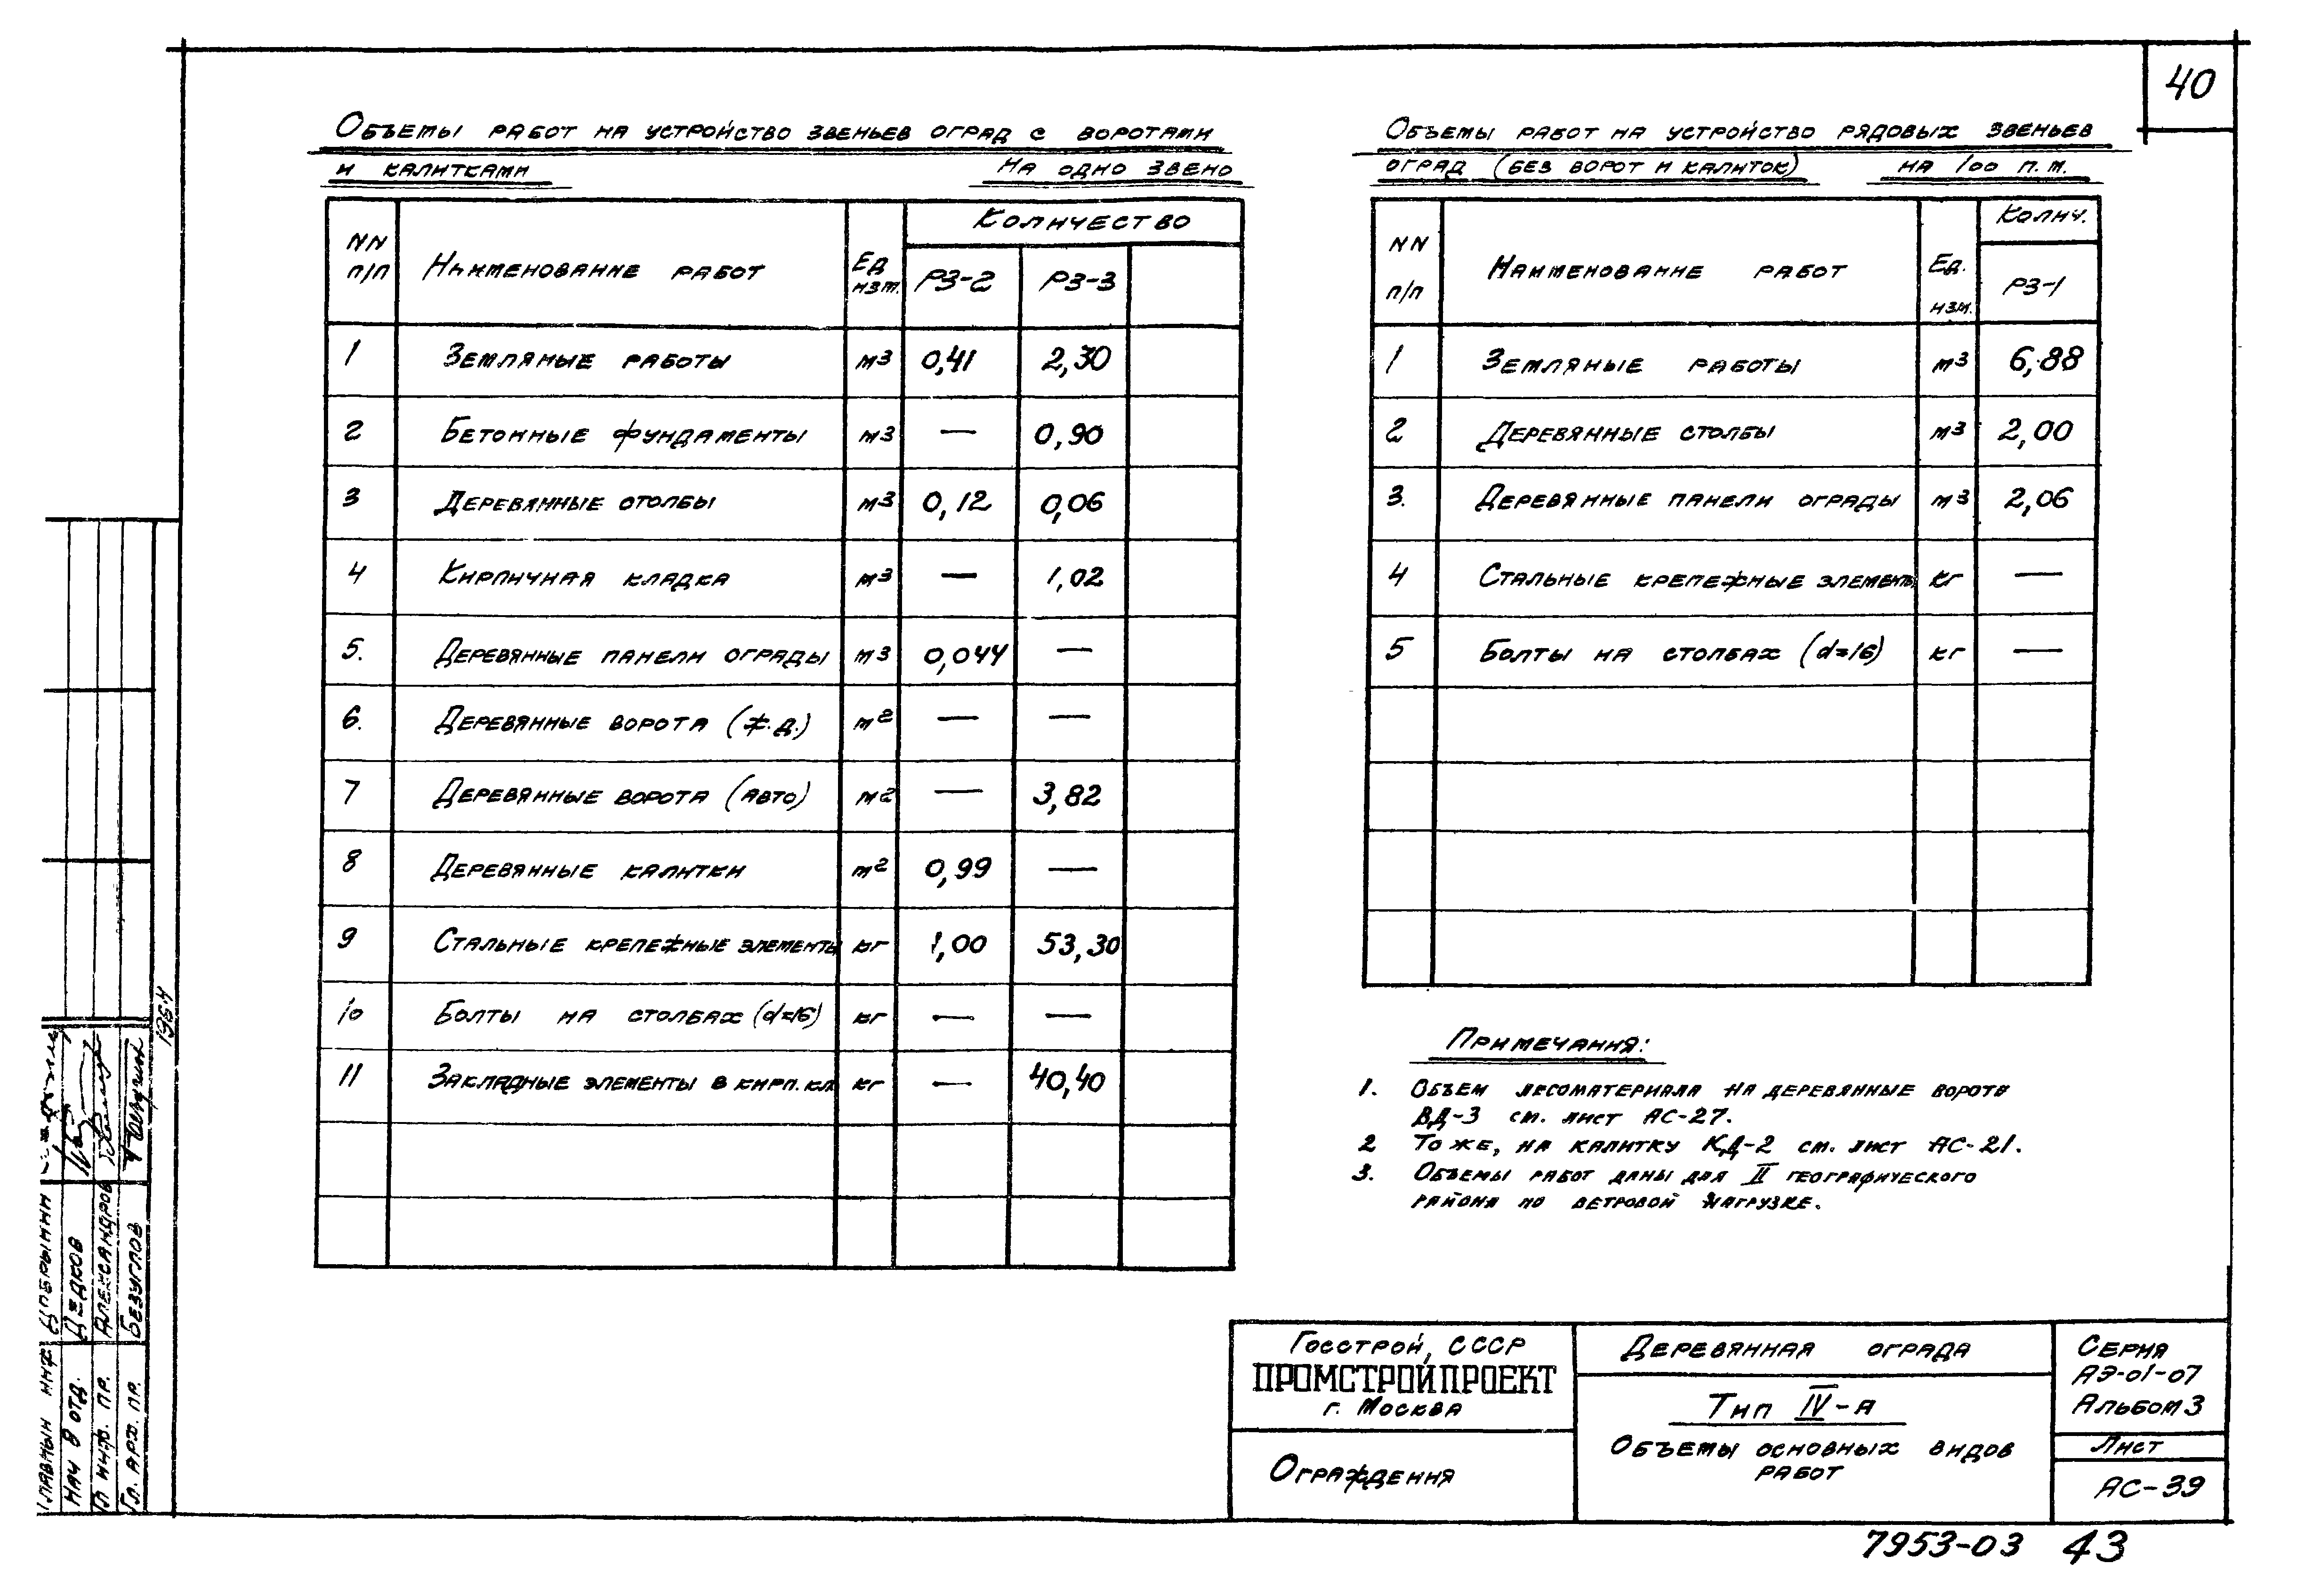 40
Объемы работ на устройство звеньев оград с воротами
и калитками На одно звено
NN п/п Наименование работ Ед изм. Количество
РЗ-2 РЗ-3
1 Земляные работы м3 0,41 2,30
2 Бетонные фундаменты м3 — 0,90
3 Деревянные столбы м3 0,12 0,06
4 Кирпичная кладка м3 — 1,02
5. Деревянные панели ограды м3 0,044 —
6. Деревянные ворота (ж.д.) м2 — —
7 Деревянные ворота (авто) м2 — 3,82
8 Деревянные калитки м2 0,99 —
9 Стальные крепежные элементы кг 1,00 53,30
10 Болты на столбах (d=16) кг — —
11 Закладные элементы в кирп. кл. кг — 40,40
Объемы работ на устройство рядовых звеньев
оград (без ворот и калиток) на 100 п.м.
NN п/п Наименование работ Ед. изм. Колич.
РЗ-1
1 Земляные работы м3 6,88
2 Деревянные столбы м3 2,00
3. Деревянные панели ограды м3 2,06
4 Стальные крепежные элементы кг —
5 Болты на столбах (d=16) кг —
Примечания:
1. Объем лесоматериала на деревянные ворота
ВД-3 см. лист АС-27.
2 То же, на калитку КД-2 см. лист АС-21.
3. Объемы работ даны для II географического
района по ветровой нагрузке.
Госстрой, СССР
ПРОМСТРОЙПРОЕКТ
г. Москва
Ограждения
Деревянная ограда
Тип IV-а
Объемы основных видов
работ
Серия
АЭ-01-07
Альбом 3
Лист
АС-39
7953-03 43
1964
Нач 8 отд. Дедков
Гл инж. пр. Александров
Гл. арх. пр. Безуглов